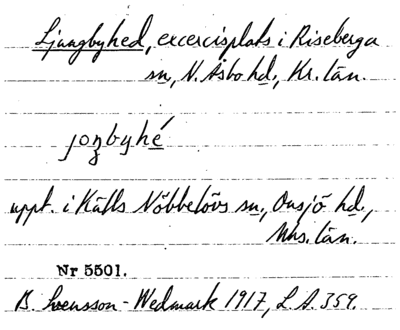 Ljungbyhed, excercisplats i Riseberga
sn, N. Åsbo hd, Kr. län.
joŋbyhé
uppt. i Källs Nöbbelövs sn, Onsjö hd,
Mhs. län.
Nr 5501.
B. Svensson-Wedmark 1917, L.A. 359.